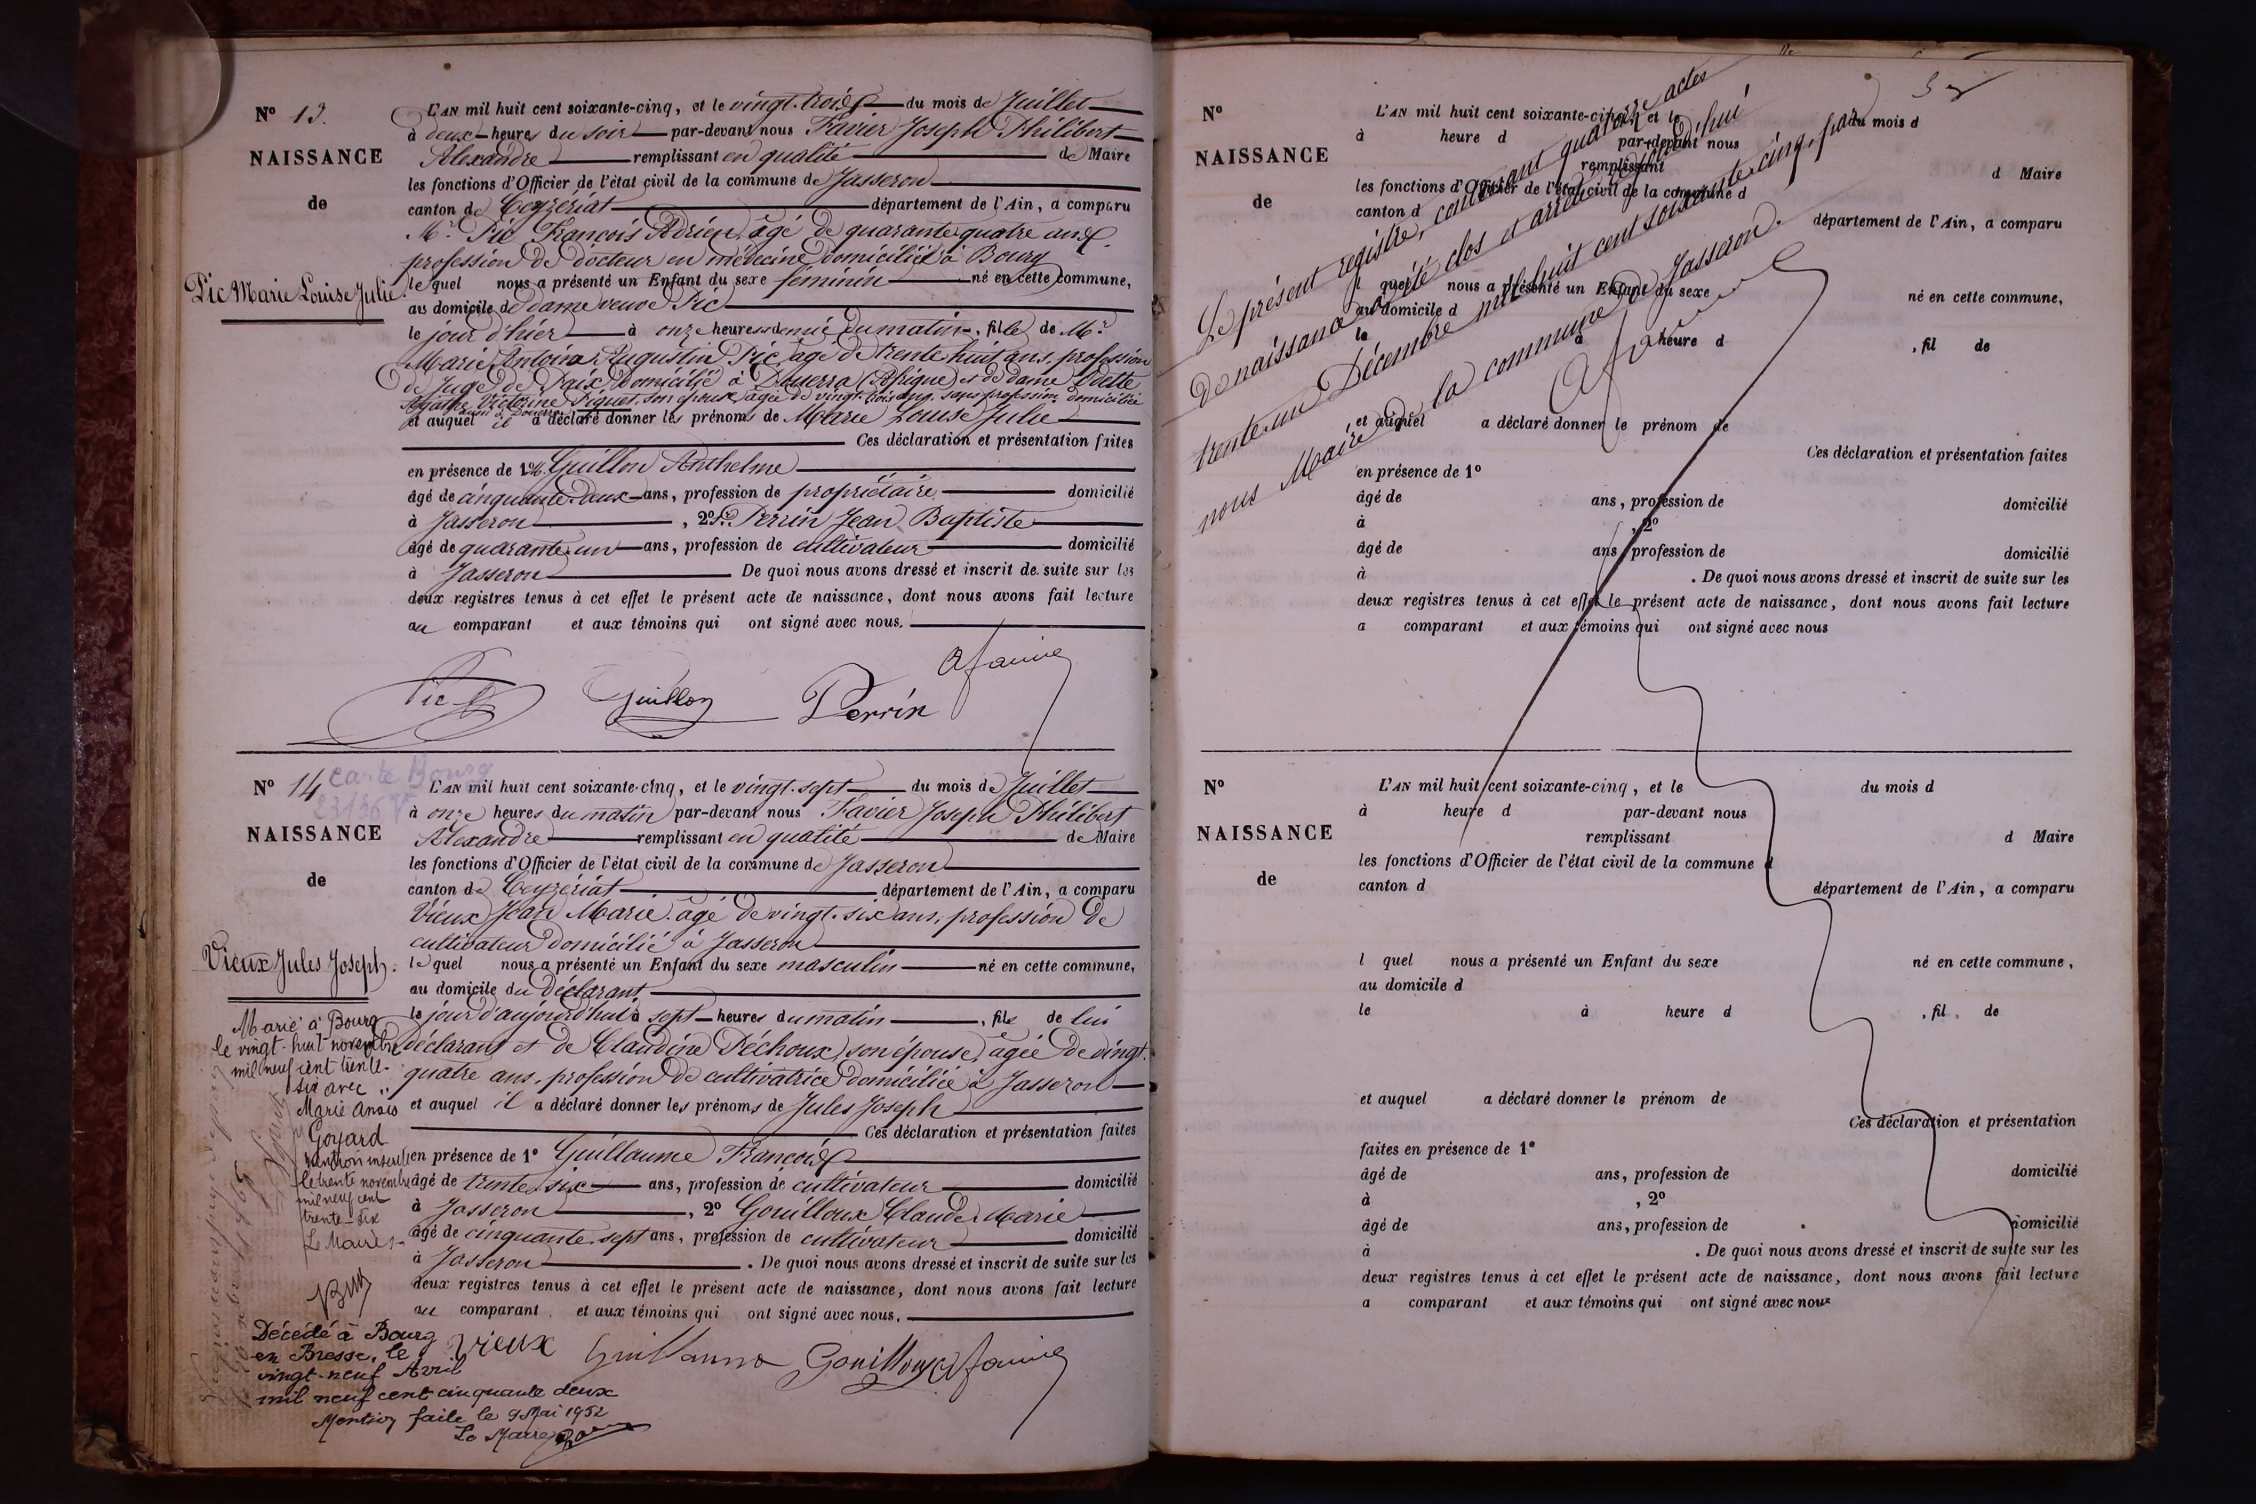 N° 13.
NAISSANCE
de
Pic Marie Louise Julie.
L'AN mil huit cent soixante-cinq, et le vingt-trois du mois de Juillet
à deux heures du soir par-devant nous Favier Joseph Philibert
Alexandre remplissant en qualité de Maire
les fonctions d'Officier de l'état civil de la commune de Jasseron
canton de Ceyzériat département de l'Ain, a comparu
Mr. Pic François Adrien, âgé de quarante quatre ans,
profession de docteur en médecine domicilié à Bourg
lequel nous a présenté un Enfant du sexe féminin né en cette commune,
au domicile de dame veuve Pic
le jour d'hier à onze heures et demie du matin, fille de Mr.
Marie Antoine Augustin Pic, âgé de trente huit ans, profession
de Juge de Paix, domicilié à Douerra (Afrique) et de dame Odette
Agathe Victorine Piquet, son épouse, âgée de vingt-trois ans, sans profession domiciliée
aussi à Douerra
et auquel il a déclaré donner les prénoms de Marie Louise Julie
Ces déclaration et présentation faites
en présence de 1° M. Guillon Anthelme
âgé de cinquante-deux ans, profession de propriétaire domicilié
à Jasseron, 2° Sr. Perrin Jean Baptiste
âgé de quarante-un ans, profession de cultivateur domicilié
à Jasseron De quoi nous avons dressé et inscrit de suite sur les
deux registres tenus à cet effet le présent acte de naissance, dont nous avons fait lecture
au comparant et aux témoins qui ont signé avec nous.
Pic Guillon Perrin A favier
N° 14
carte Bourg
23136 V
NAISSANCE
de
Vieux Jules Joseph.
Marié à Bourg
le vingt-huit novembre
mil neuf cent trente-
six avec
Marie Anaïs
Goyard
mention inscrite
le trente novembre
mil neuf cent
trente-six
Le Maire
Décédé à Bourg
en Bresse, le
vingt-neuf Avril
mil neuf cent cinquante deux
Mention faite le 9 Mai 1952
Le Maire
L'AN mil huit cent soixante-cinq, et le vingt-sept du mois de Juillet
à onze heures du matin par-devant nous Favier Joseph Philibert
Alexandre remplissant en qualité de Maire
les fonctions d'Officier de l'état civil de la commune de Jasseron
canton de Ceyzériat département de l'Ain, a comparu
Vieux Jean Marie, âgé de vingt-six ans, profession de
cultivateur domicilié à Jasseron
lequel nous a présenté un Enfant du sexe masculin né en cette commune,
au domicile du déclarant
le jour d'aujourd'hui à sept heures du matin, fils de lui
déclarant et de Claudine Péchoux, son épouse, âgée de vingt-
quatre ans, profession de cultivatrice domiciliée à Jasseron
et auquel il a déclaré donner les prénoms de Jules Joseph
Ces déclaration et présentation faites
en présence de 1° Guillaume François
âgé de trente-six ans, profession de cultivateur domicilié
à Jasseron, 2° Gouilloux Claude Marie
âgé de cinquante-sept ans, profession de cultivateur domicilié
à Jasseron. De quoi nous avons dressé et inscrit de suite sur les
deux registres tenus à cet effet le présent acte de naissance, dont nous avons fait lecture
au comparant et aux témoins qui ont signé avec nous.
vieux Guillaume Gouilloux A favier
Le présent registre, contenant quatorze actes
de naissance a été clos et arrêté aujourd'hui
trente-un Décembre mil huit cent soixante-cinq, par
nous Maire de la commune de Jasseron.
A favier
N°
NAISSANCE
de
L'AN mil huit cent soixante-cinq, et le du mois d
à heure d par-devant nous
remplissant d Maire
les fonctions d'Officier de l'état civil de la commune d
canton d département de l'Ain, a comparu
l quel nous a présenté un Enfant du sexe né en cette commune,
au domicile d
le à heure d , fil de
et auquel a déclaré donner le prénom de
Ces déclaration et présentation faites
en présence de 1°
âgé de ans, profession de domicilié
à , 2°
âgé de ans, profession de domicilié
à . De quoi nous avons dressé et inscrit de suite sur les
deux registres tenus à cet effet le présent acte de naissance, dont nous avons fait lecture
a comparant et aux témoins qui ont signé avec nous
N°
NAISSANCE
de
L'AN mil huit cent soixante-cinq, et le du mois d
à heure d par-devant nous
remplissant d Maire
les fonctions d'Officier de l'état civil de la commune d
canton d département de l'Ain, a comparu
l quel nous a présenté un Enfant du sexe né en cette commune,
au domicile d
le à heure d , fil de
et auquel a déclaré donner le prénom de
Ces déclaration et présentation
faites en présence de 1°
âgé de ans, profession de domicilié
à , 2°
âgé de ans, profession de domicilié
à . De quoi nous avons dressé et inscrit de suite sur les
deux registres tenus à cet effet le présent acte de naissance, dont nous avons fait lecture
a comparant et aux témoins qui ont signé avec nous